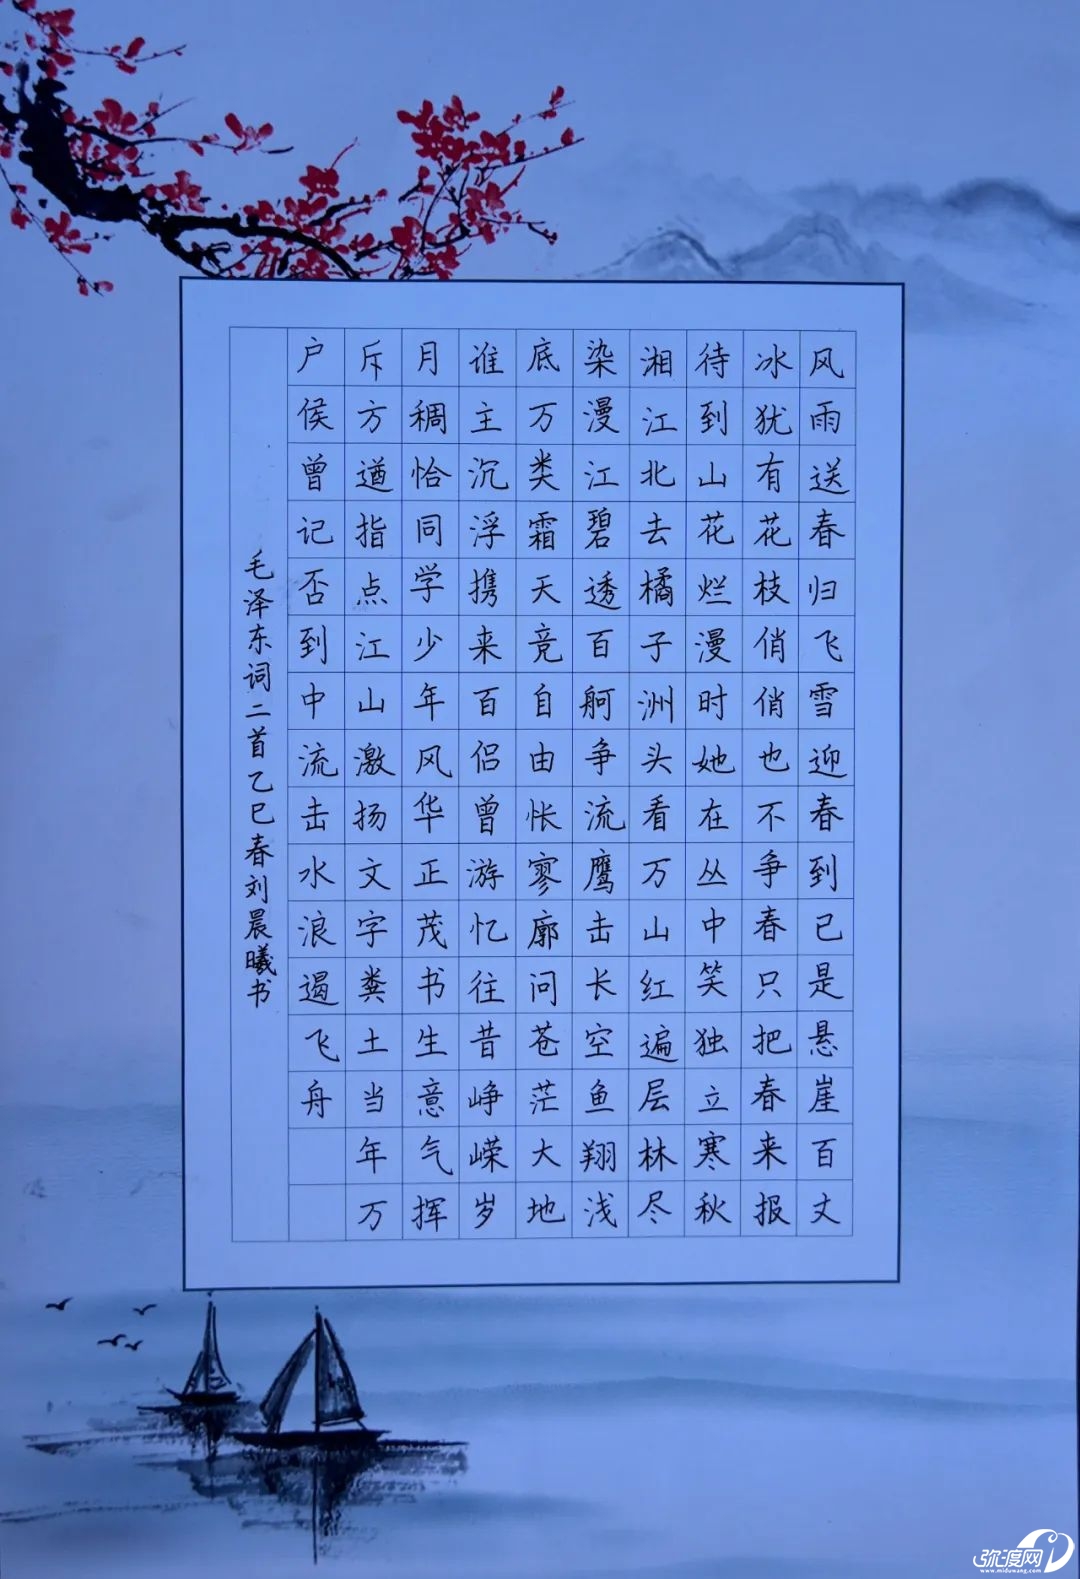 风雨送春归飞雪迎春到已是悬崖百丈
冰犹有花枝俏俏也不争春只把春来报
待到山花烂漫时她在丛中笑独立寒秋
湘江北去橘子洲头看万山红遍层林尽
染漫江碧透百舸争流鹰击长空鱼翔浅
底万类霜天竞自由怅寥廓问苍茫大地
谁主沉浮携来百侣曾游忆往昔峥嵘岁
月稠恰同学少年风华正茂书生意气挥
斥方遒指点江山激扬文字粪土当年万
户侯曾记否到中流击水浪遏飞舟
毛泽东词二首乙巳春刘晨曦书
弥渡网
www.miduwang.com